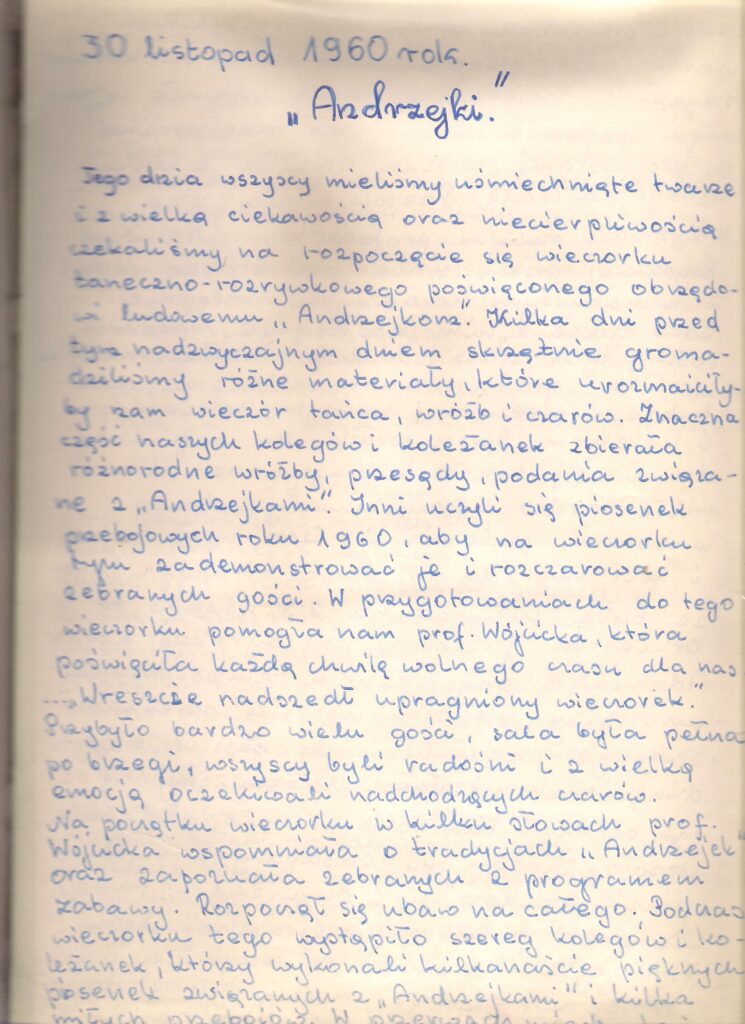 30 listopad 1960 rok.
„Andrzejki."
Tego dnia wszyscy mieliśmy uśmiechnięte twarze
i z wielką ciekawością oraz niecierpliwością
czekaliśmy na rozpoczęcie się wieczorku
taneczno-rozrywkowego poświęconego obrzędo-
wi ludowemu „Andrzejkom". Kilka dni przed
tym nadzwyczajnym dniem skrzętnie groma-
dziliśmy różne materiały, które urozmaiciły-
by nam wieczór tańca, wróżb i czarów. Znaczna
część naszych kolegów i koleżanek zbierała
różnorodne wróżby, przesądy, podania związa-
ne z „Andrzejkami". Inni uczyli się piosenek
przebojowych roku 1960, aby na wieczorku
tym zademonstrować je i rozczarować
zebranych gości. W przygotowaniach do tego
wieczorku pomogła nam prof. Wójcicka, która
poświęciła każdą chwilę wolnego czasu dla nas
...„Wreszcie nadszedł upragniony wieczorek."
Przybyło bardzo wielu gości, sala była pełna
po brzegi, wszyscy byli radośni i z wielką
emocją oczekiwali nadchodzących czarów.
Na początku wieczorku w kilku słowach prof.
Wójcicka wspomniała o tradycjach „Andrzejek"
oraz zapoznała zebranych z programem
zabawy. Rozpoczął się ubaw na całego. Podczas
wieczorku tego wystąpiło szereg kolegów i ko-
leżanek, którzy wykonali kilkanaście pięknych
piosenek związanych z „Andrzejkami" i kilka
miłych przebojów. W